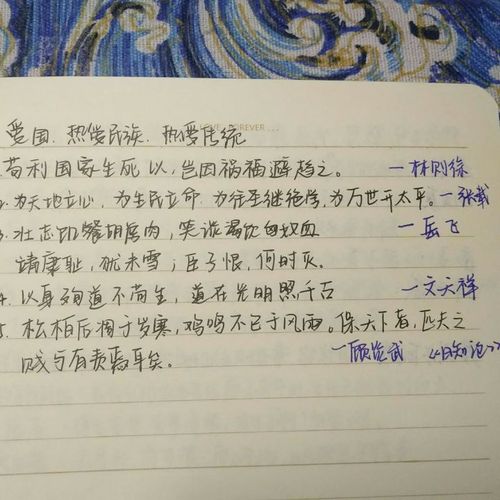 FOREVER...
爱国、热爱民族、热爱传统
1.苟利国家生死以,岂因祸福避趋之。 —林则徐
2.为天地立心,为生民立命,为往圣继绝学,为万世开太平。—张载
3.壮志饥餐胡虏肉,笑谈渴饮匈奴血 —岳飞
靖康耻,犹未雪;臣子恨,何时灭。
4.以身殉道不苟生,道在光明照千古 —文天祥
5.松柏后凋于岁寒,鸡鸣不已于风雨。保天下者,匹夫之
贱与有责焉耳矣。 —顾炎武 《日知论》